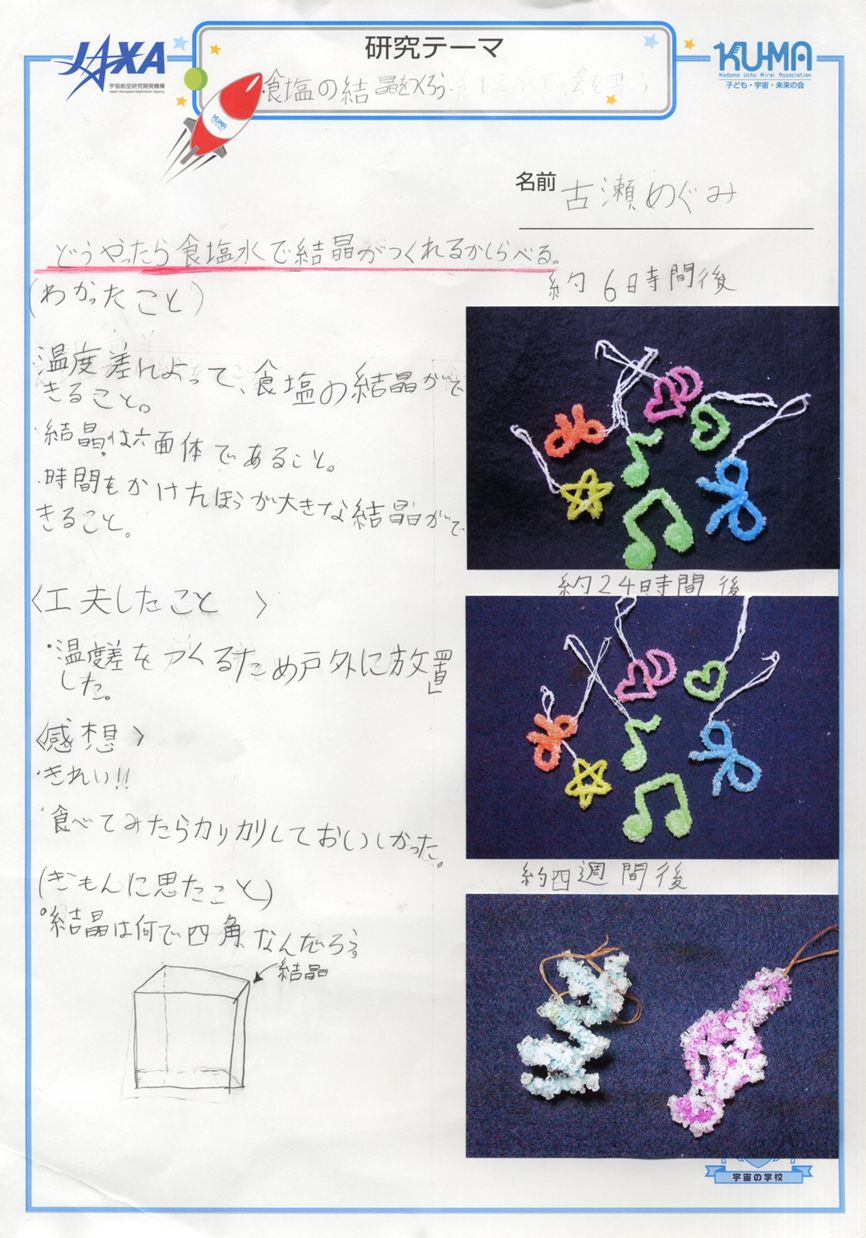 JAXA
宇宙航空研究開発機構
Japan Aerospace Exploration Agency
研究テーマ
食塩の結晶をつくろう
KU-MA
Kodomo Uchu Mirai Association
子ども・宇宙・未来の会
KU-MA
名前 古瀬めぐみ
どうやったら食塩水で結晶がつくれるかしらべる。
(わかったこと)
・温度差によって、食塩の結晶がで
きること。
・結晶は六面体であること。
・時間をかけたほうが大きな結晶がで
きること。
〈工夫したこと 〉
・温度差をつくるため戸外に放置
した。
〈感想〉
・きれい!!
・食べてみたらカリカリしておいしかった。
(ぎもんに思たこと)
・結晶は何で四角なんだろう。
結晶
約6時間後
約24時間後
約四週間後
宇宙の学校